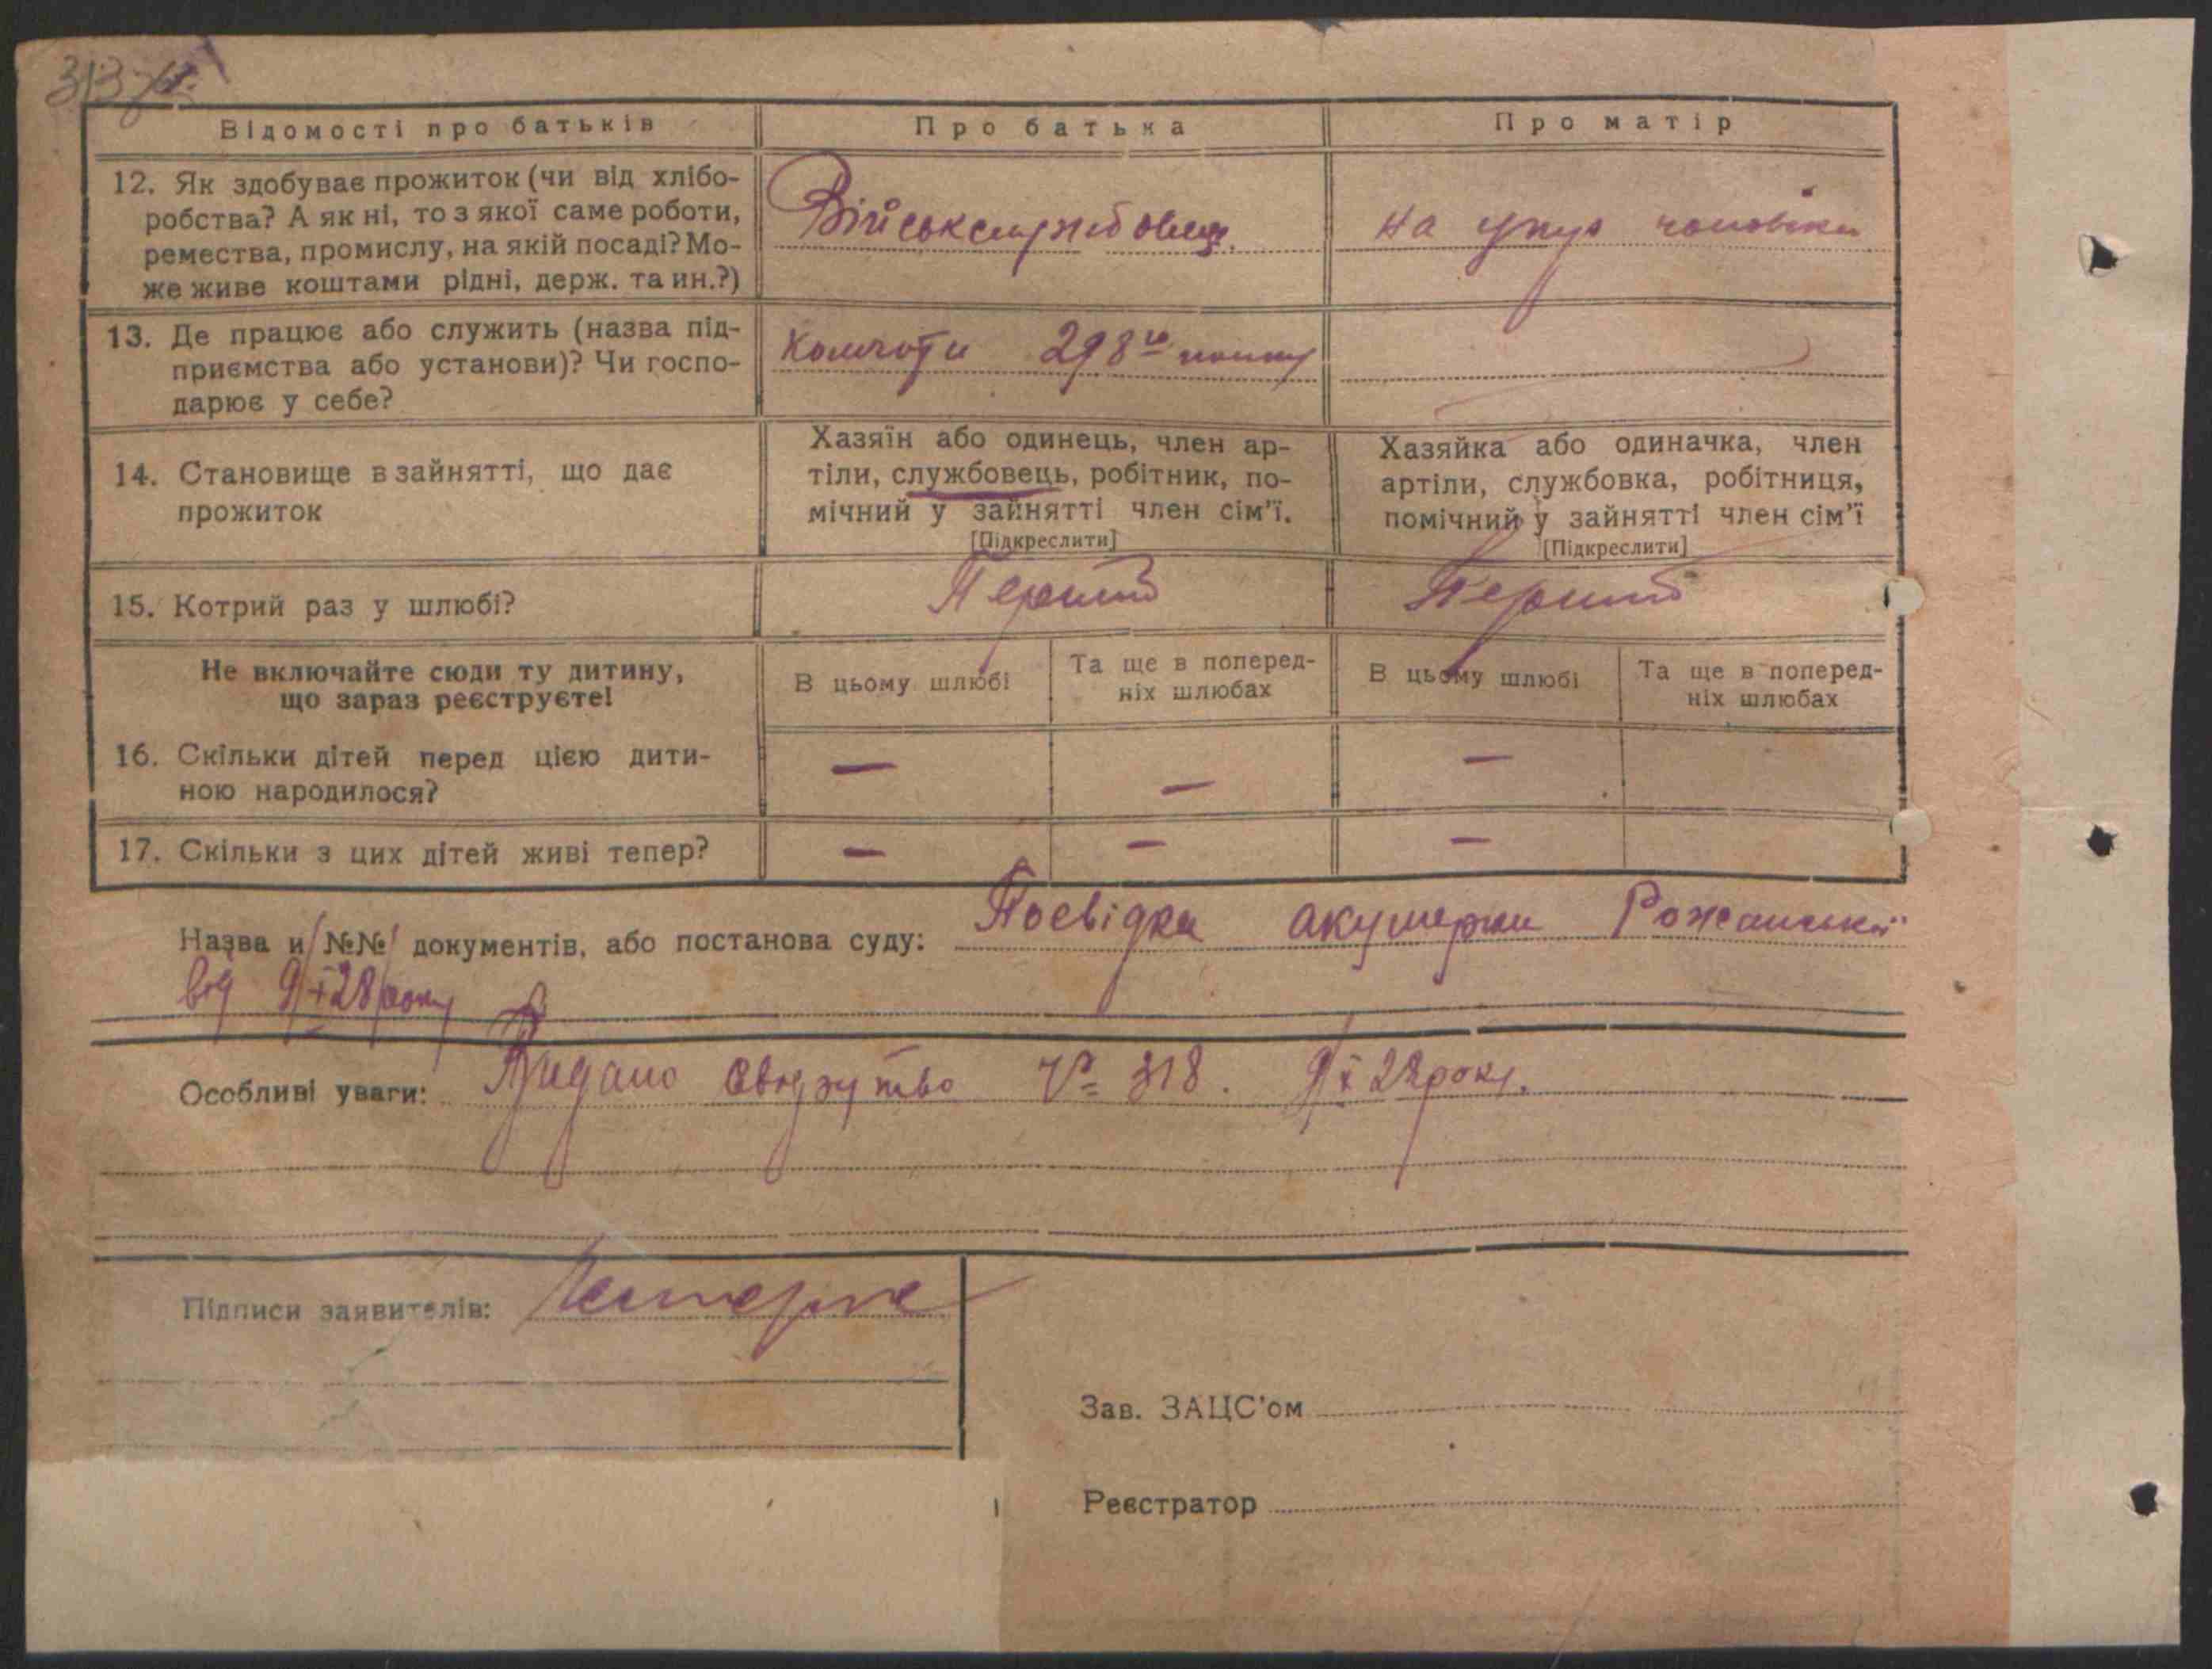 313
Відомості про батьків
Про батька
Про матір
12. Як здобуває прожиток (чи від хлібо-
робства? А як ні, то з якої саме роботи,
ремества, промислу, на якій посаді? Мо-
же живе коштами рідні, держ. та ин.?)
Військслужбовець.
на утр чоловіка
13. Де працює або служить (назва під-
приємства або установи)? Чи госпо-
дарює у себе?
Комроти 298го полку
14. Становище в зайнятті, що дає
прожиток
Хазяїн або одинець, член ар-
тіли, службовець, робітник, по-
мічний у зайнятті член сім'ї.
[Підкреслити]
Хазяйка або одиначка, член
артіли, службовка, робітниця,
помічний у зайнятті член сім'ї
[Підкреслити]
15. Котрий раз у шлюбі?
Перший
Перший
Не включайте сюди ту дитину,
що зараз реєструєте!
В цьому шлюбі
Та ще в поперед-
ніх шлюбах
В цьому шлюбі
Та ще в поперед-
ніх шлюбах
16. Скільки дітей перед цією дити-
ною народилося?
— — —
17. Скільки з цих дітей живі тепер?
— — —
Назва и №№ документів, або постанова суду: Посвідка акушерки Рожанської
від 9/X 28 року
Особливі уваги: Видано свідоцтво № 318. 9/X 28 року.
Підписи заявителів:
Зав. ЗАЦС'ом
Реєстратор